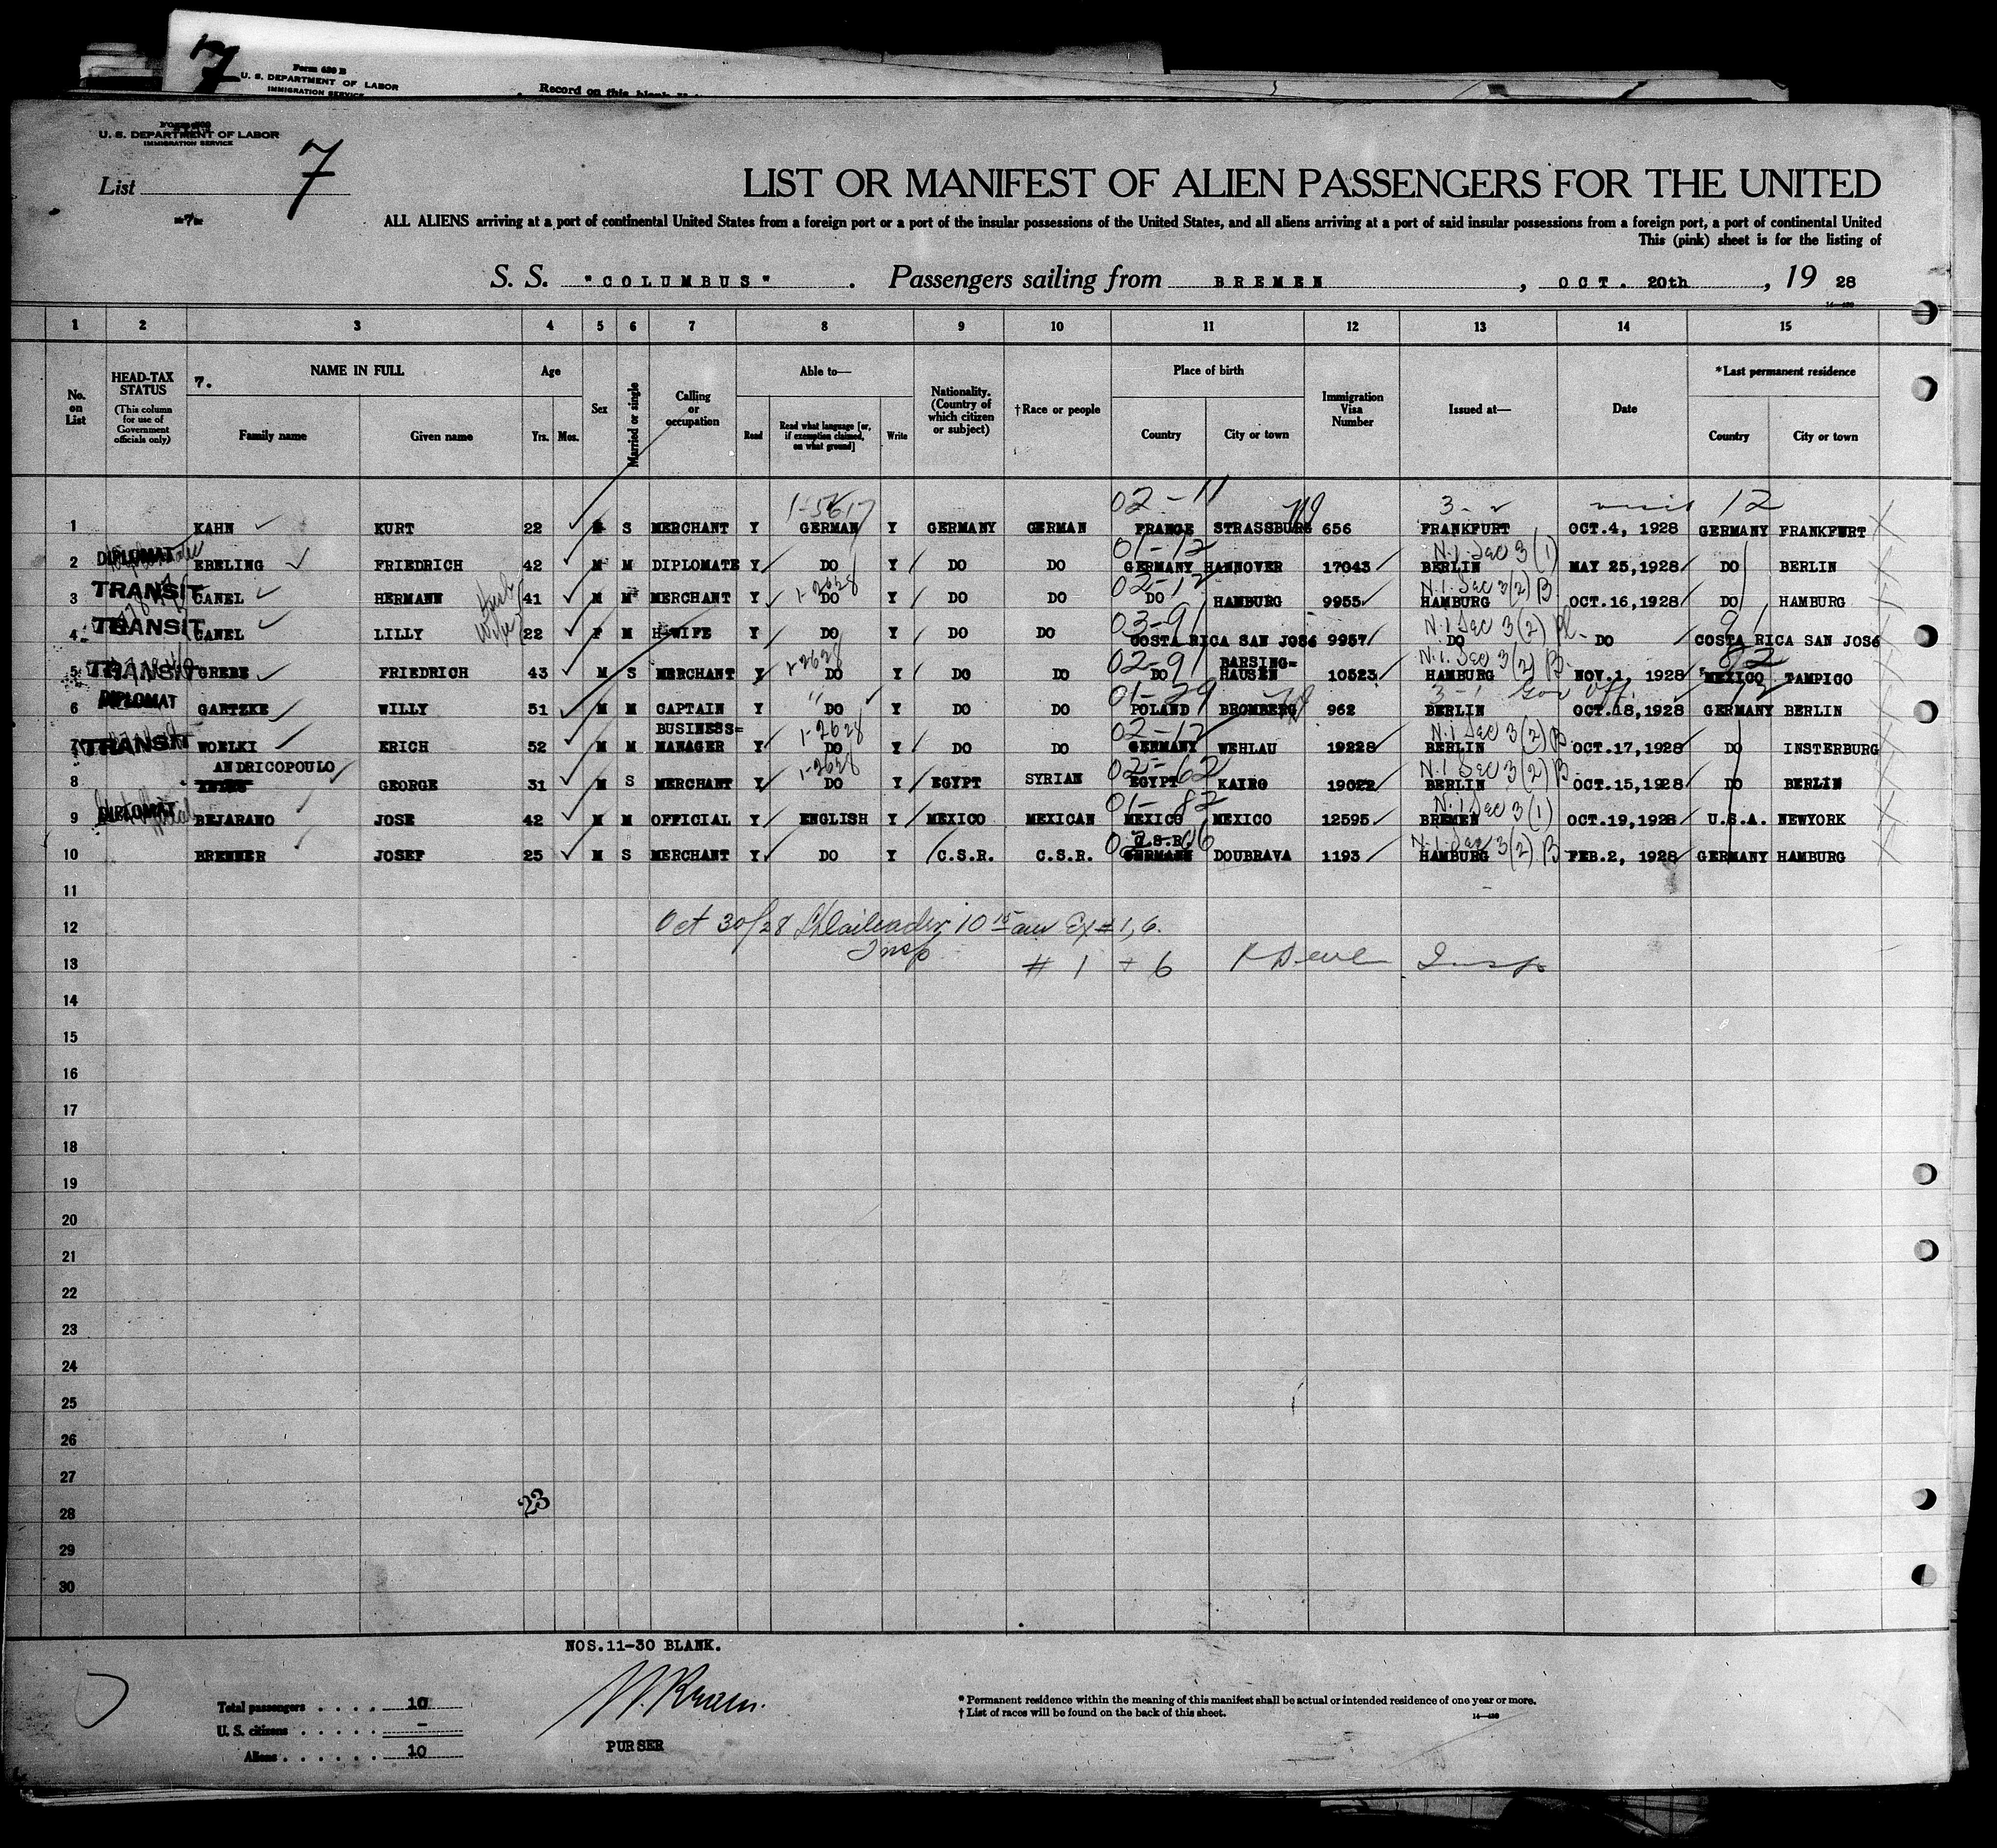 7
Form 630 B
U. S. DEPARTMENT OF LABOR
IMMIGRATION SERVICE
Record on this blank
U. S. DEPARTMENT OF LABOR
IMMIGRATION SERVICE
List 7
-7-
LIST OR MANIFEST OF ALIEN PASSENGERS FOR THE UNITED
ALL ALIENS arriving at a port of continental United States from a foreign port or a port of the insular possessions of the United States, and all aliens arriving at a port of said insular possessions from a foreign port, a port of continental United
This (pink) sheet is for the listing of
S. S. "COLUMBUS". Passengers sailing from BREMEN, OCT. 20th, 19 28
1 2 3 4 5 6 7 8 9 10 11 12 13 14 15
No. on List
HEAD-TAX STATUS
(This column for use of Government officials only)
7. NAME IN FULL
Family name Given name
Age
Yrs. Mos.
Sex
Married or single
Calling or occupation
Able to—
Read Read what language [or, if exemption claimed, on what ground] Write
Nationality. (Country of which citizen or subject)
†Race or people
Place of birth
Country City or town
Immigration Visa Number
Issued at—
Date
*Last permanent residence
Country City or town
02-11 3- 12
1 KAHN KURT 22 S MERCHANT Y GERMAN Y GERMANY GERMAN FRANCE STRASSBURG 656 FRANKFURT OCT.4, 1928 GERMANY FRANKFURT
DIPLOMAT 01-12 N.I. Sec 3(1)
2 EBELING FRIEDRICH 42 M M DIPLOMATE Y DO Y DO DO GERMANY HANNOVER 17043 BERLIN MAY 25,1928 DO BERLIN
TRANSIT Husb 1-2628 02-12 N.I. Sec 3(2) B
3 CANEL HERMANN 41 M M MERCHANT Y DO Y DO DO DO HAMBURG 9955 HAMBURG OCT.16,1928 DO HAMBURG
TRANSIT Wife 03-91 N.I Sec 3(2) B 91
4 CANEL LILLY 22 F M H-WIFE Y DO Y DO DO COSTA RICA SAN JOSé 9957 DO DO COSTA RICA SAN JOSé
TRANSIT 1-2628 02-91 BARSING= N.I. Sec 3(2) B. 82
5 GREBE FRIEDRICH 43 M S MERCHANT Y DO Y DO DO DO HAUSEN 10523 HAMBURG NOV.1, 1928 MEXICO TAMPICO
DIPLOMAT " 01-29 3-1 Gov Off. 12
6 GARTZKE WILLY 51 M M CAPTAIN Y DO Y DO DO POLAND BROMBERG 962 BERLIN OCT.18,1928 GERMANY BERLIN
TRANSIT BUSINESS= 1-2628 02-12 N.I Sec 3(2) B
7 WOELKI ERICH 52 M M MANAGER Y DO Y DO DO GERMANY WEHLAU 19228 BERLIN OCT.17,1928 DO INSTERBURG
ANDRICOPOULO 1-2628 02-62 N.I. Sec 3(2) B
8 GEORGE 31 M S MERCHANT Y DO Y EGYPT SYRIAN EGYPT KAIRO 19022 BERLIN OCT.15,1928 DO BERLIN
DIPLOMAT 01-82 N.I Sec 3(1)
9 BEJARANO JOSE 42 M M OFFICIAL Y ENGLISH Y MEXICO MEXICAN MEXICO MEXICO 12595 BREMEN OCT.19,1928 U.S.A. NEWYORK
C.S.R. N.I. Sec 3(2) B
10 BRENNER JOSEF 25 M S MERCHANT Y DO Y C.S.R. C.S.R. GERMANY DOUBRAVA 1193 HAMBURG FEB.2, 1928 GERMANY HAMBURG
11
12 Oct 30/28 10 15 am Ex # 1, 6.
Insp
13 # 1 + 6 Insp
14
15
16
17
18
19
20
21
22
23
24
25
26
27
28 23
29
30
NOS.11-30 BLANK.
Total passengers . . . . 10
U. S. citizens . . . . . -
Aliens . . . . . . 10
PURSER
* Permanent residence within the meaning of this manifest shall be actual or intended residence of one year or more.
† List of races will be found on the back of this sheet.